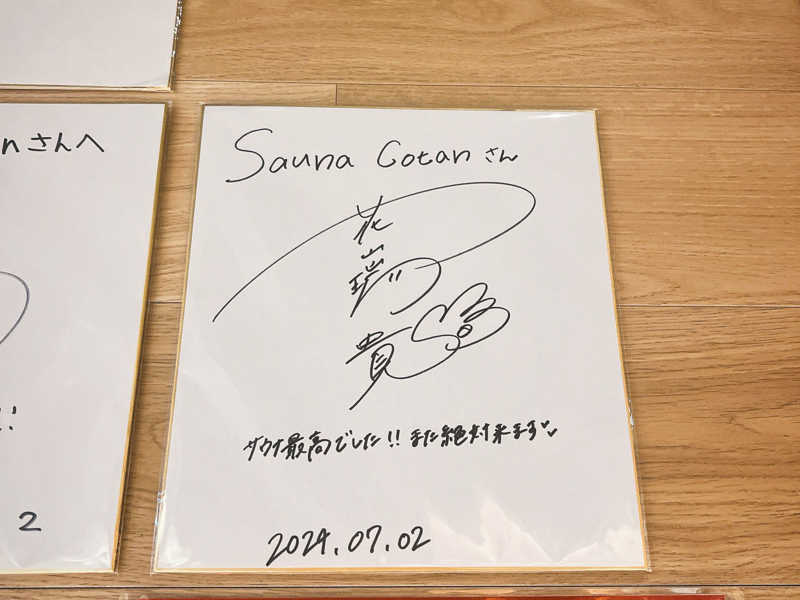 nさんへ
2
Sauna Cotanさん
花山瑞貴
サウナ最高でした!! また絶対来ます
2024.07.02